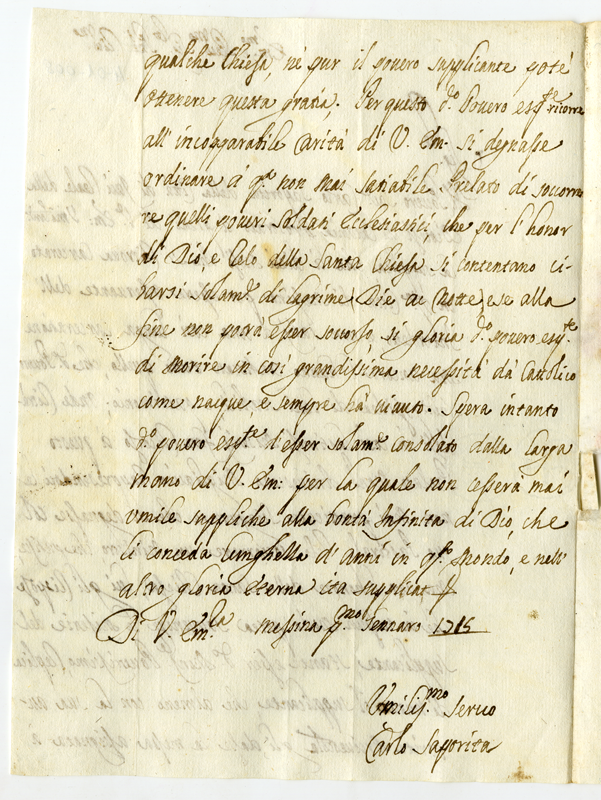 qualche Chiesa, né pur il povero supplicante poté
ottenere questa gratia. Per questo d.º Povero esp.te ricorre
all' incopparabile Carità di V. Em. si degnasse
ordinare à q.º non mai satiabile Prelato di soccorre
re quelli poveri soldati Ecclesiastici, che per l'honor
di Dio, e Celo della Santa Chiesa si contentano ci-
barsi solam.e di lagrime Die ac Notte, e se alla
fine non potrà esser socorso, si gloria d.º povero esp.te
di morire in così grandissima necessità dà Cattolico
come nacque e sempre hà vivuto. Spera intanto
d.º povero esp.te d'esser solam.e consolato dalla larga
mano di V. Em. per la quale non cesserà mai
umile suppliche alla bontà Infinita di Dio, che
li conceda lunghella d'anni in q.º Mondo, e nell'
altro gloria eterna ita supplicat
Di V. Em.la Messina p.mo Gennaro 1715
Umiliss.mo servo
Carlo Saporita